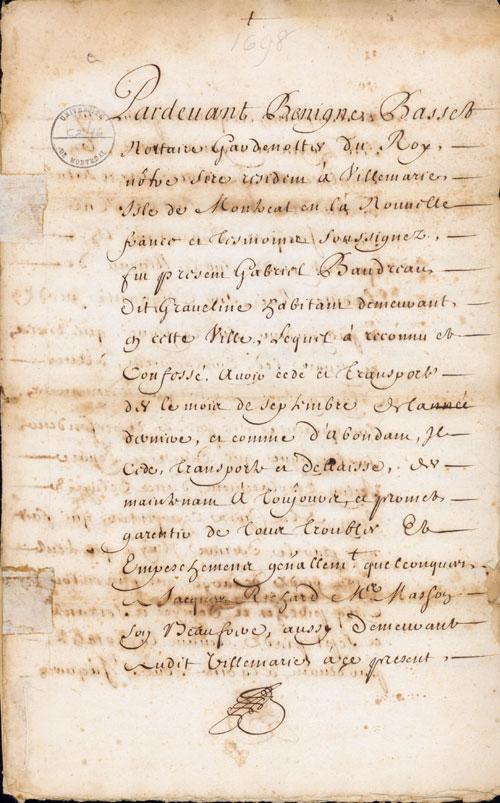 1698
UNIVERSITÉ
DE MONTRÉAL
Pardevant Benigne Basset
Nottaire Gardenottes du Roy,
nõtre sire resident à Villemarie
Isle de Montreal en la Nouvelle
france et tesmoins soussignez,
fut present Gabriel Baudreau
dit Graveline habitant demeurant
en cette Ville, Lequel à reconnu et
Confessé, Avoir cedé et transporté
dès le mois de septembre de l'année
derniere, et comme d'abondant, Il
Cede, transporte et dellaisse, dès
maintenant à toujours, et promet
garentir de tous troubles Et
Empeschemens gñallem.t quelconques
A Jacques Richard M.e Masson
son Beaufrere, aussy demeurant
Audit Villemarie, a ce present,